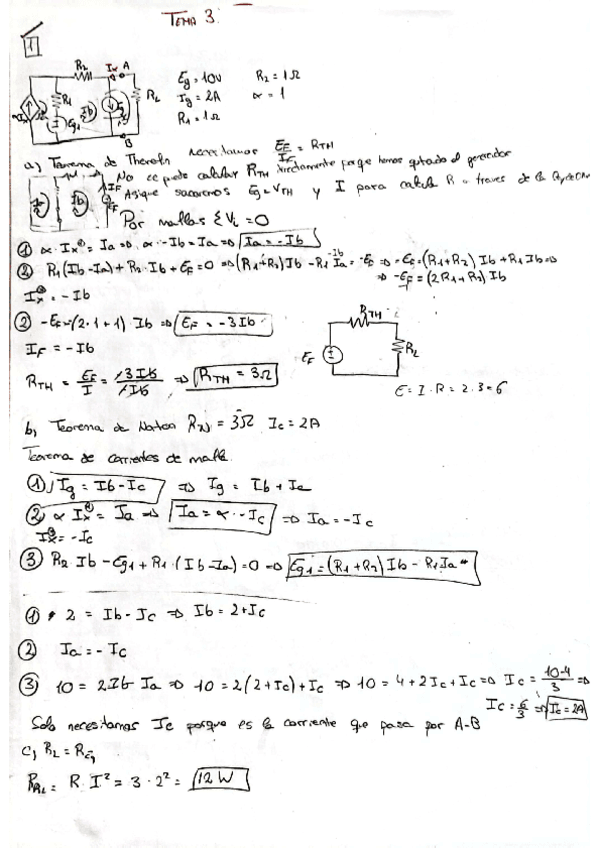 TEMA 3
1
R2 Ix A
Eg = 10V R2 = 1Ω
Ig = 2A α = 1
R1 = 1Ω
R1 Ib RL
Eg1
B
a) Teorema de Thevenin necesitamos EF/IF = RTH
No se puede calcular RTH directamente porque hemos quitado el generador
Asique sacaremos Eg = VTH y I para calcular R a través de la Ley de Ohm
IF
EF
Ia Ib
Por mallas ΣVi = 0
① α · Ix = Ia ⇒ α · -Ib = Ia ⇒ Ia = -Ib
② R1(Ib - Ia) + R2 · Ib + EF = 0 ⇒ (R1+R2)Ib - R1 Ia = -EF ⇒ -EF = (R1+R2) Ib + R1 Ib ⇒
-Ib
⇒ -EF = (2R1+R2) Ib
Ix = -Ib
② -EF = (2·1+1) Ib ⇒ EF = -3Ib
IF = -Ib
RTH = EF/I = -3Ib/-Ib ⇒ RTH = 3Ω
RTH
EF RL
E = I · R = 2 · 3 = 6
b) Teorema de Norton RN = 3Ω Ic = 2A
Teorema de corrientes de malla.
① Ig = Ib - Ic ⇒ Ig = Ib + Ic
② α Ix = Ia ⇒ Ia = α · -Ic ⇒ Ia = -Ic
Ix = -Ic
③ R2 Ib - Eg1 + R1 · (Ib - Ia) = 0 ⇒ Eg1 = (R1+R2) Ib - R1 Ia
① 2 = Ib - Ic ⇒ Ib = 2 + Ic
② Ia = - Ic
③ 10 = 2Ib - Ia ⇒ 10 = 2(2+Ic) + Ic ⇒ 10 = 4 + 2Ic + Ic ⇒ Ic = 10-4/3 ⇒
Ic = 6/3 ⇒ Ic = 2A
Solo necesitamos Ic porque es la corriente que pasa por A-B
c) RL = REq
PRL = R I² = 3 · 2² = 12 W